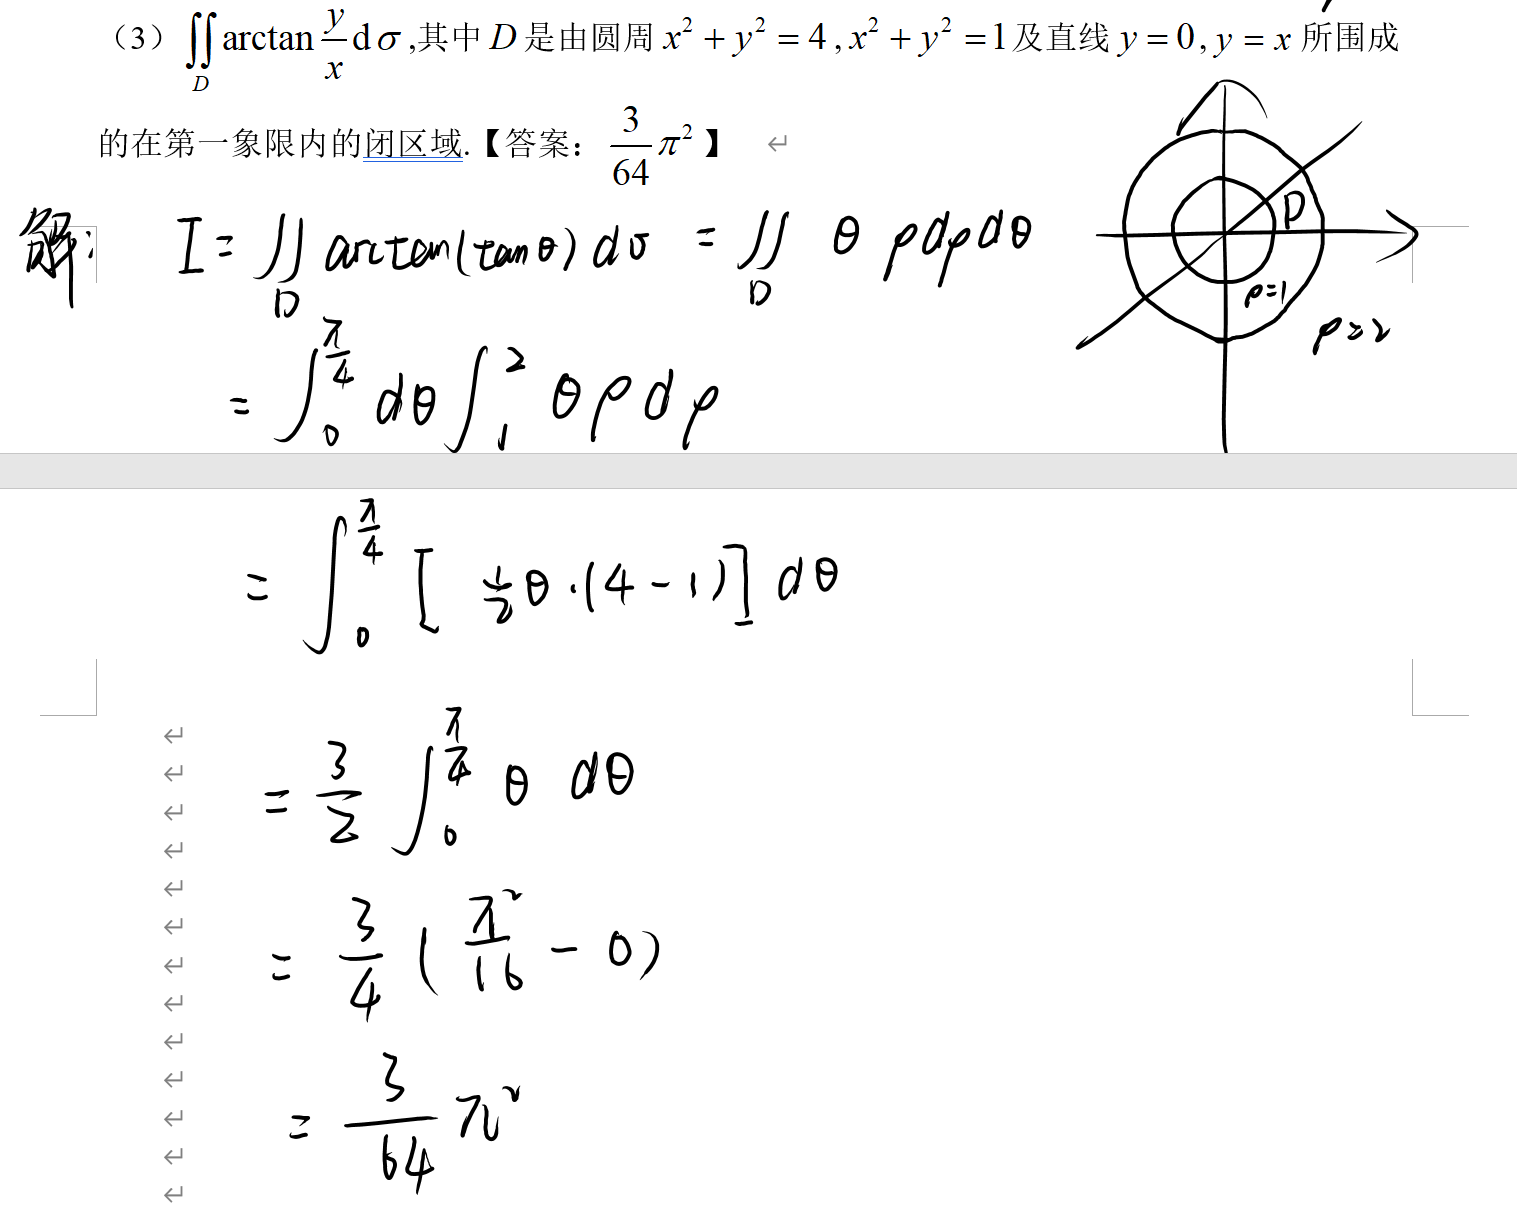 （3）∬_D arctan y/x dσ ,其中 D 是由圆周 x² + y² = 4 , x² + y² = 1 及直线 y = 0 , y = x 所围成
的在第一象限内的闭区域.【答案： 3/64 π² 】
解: I = ∬_D arctan(tanθ) dσ = ∬_D θ ρdρdθ
D
ρ=1
ρ=2
= ∫_0^{π/4} dθ ∫_1^2 θρdρ
= ∫_0^{π/4} [ ½θ·(4-1)] dθ
= 3/2 ∫_0^{π/4} θ dθ
= 3/4 ( π²/16 - 0)
= 3/64 π²